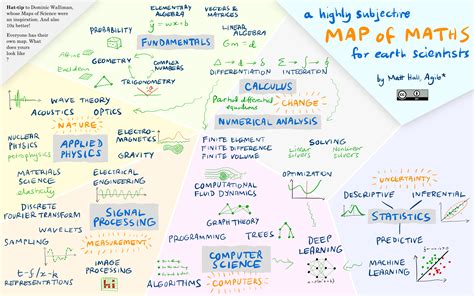 Hat-tip to Dominic Walliman,
whose Maps of Science were
an inspiration. And also
10x better!
Everyone has their
own map. What
does yours
look like
?
a highly subjective
MAP OF MATHS
for earth scientists
by Matt Hall, Agile*
ELEMENTARY
ALGEBRA
VECTORS &
MATRICES
PROBABILITY
ŷ = wx + b
LINEAR
ALGEBRA
FUNDAMENTALS
Gm = d
Affine
GEOMETRY
COMPLEX
NUMBERS
Euclidean
TRIGONOMETRY
DIFFERENTIATION
INTEGRATION
CALCULUS
Partial differential
equations
CHANGE
NUMERICAL ANALYSIS
WAVE THEORY
ACOUSTICS
OPTICS
NATURE
NUCLEAR
PHYSICS
petrophysics
APPLIED
PHYSICS
ELECTRO-
MAGNETICS
GRAVITY
MATERIALS
SCIENCE
elasticity
ELECTRICAL
ENGINEERING
FINITE ELEMENT
FINITE DIFFERENCE
FINITE VOLUME
SOLVING
Linear
solvers
Nonlinear
solvers
DISCRETE
FOURIER TRANSFORM
WAVELETS
SIGNAL
PROCESSING
SAMPLING
MEASUREMENT
t-f/x-k
REPRESENTATION
IMAGE
PROCESSING
hi
COMPUTATIONAL
FLUID DYNAMICS
OPTIMIZATION
GRAPH THEORY
PROGRAMMING
TREES
DEEP
LEARNING
COMPUTER
SCIENCE
ALGORITHMS
COMPUTERS
UNCERTAINTY
DESCRIPTIVE
INFERENTIAL
STATISTICS
PREDICTIVE
MACHINE
LEARNING